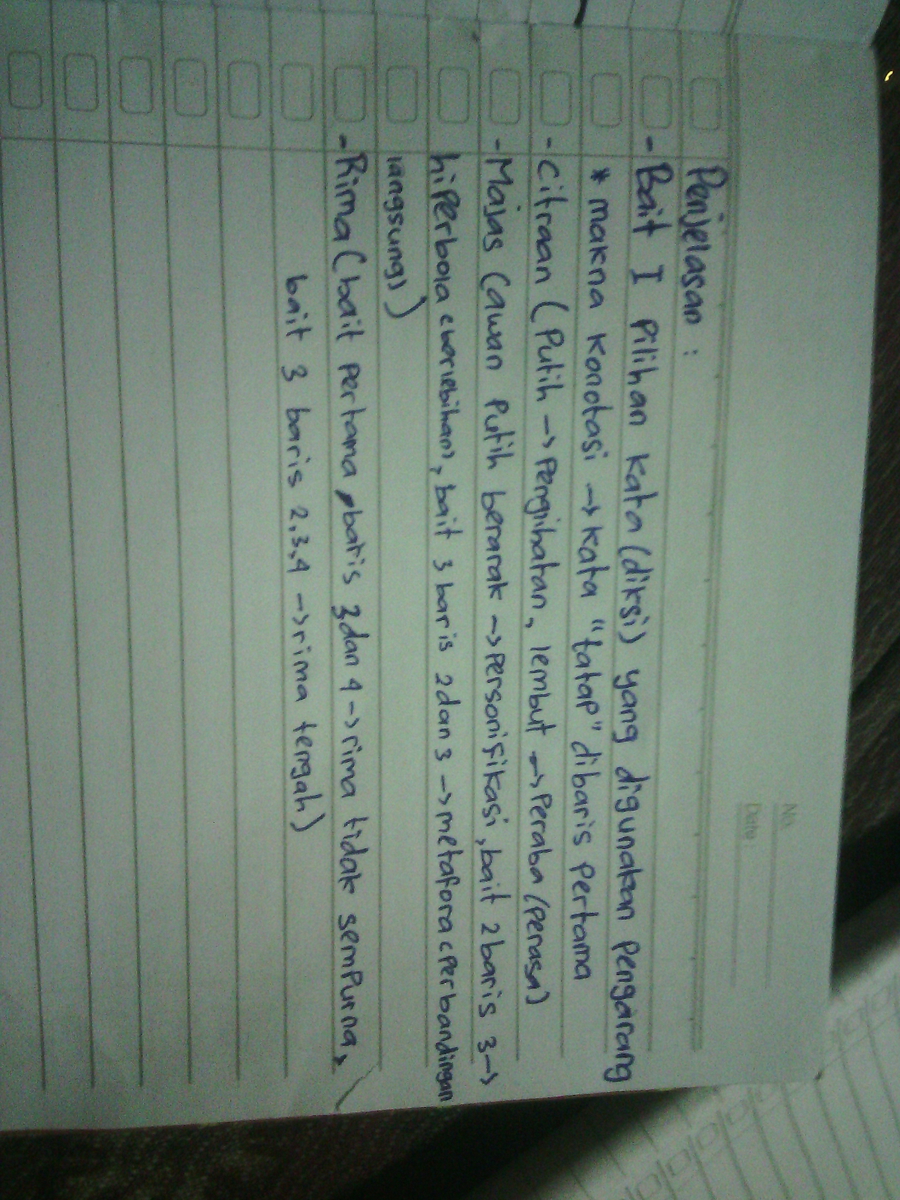 No.
Date:
Penjelasan :
- Bait I Pilihan kata (diksi) yang digunakan pengarang
* makna konotasi → kata "tatap" dibaris pertama
- Citraan (Putih → Pengihatan, lembut → Peraba (perasa)
- Majas (awan Putih berarak → personifikasi, bait 2 baris 3 →
hiperbola (berlebihan), bait 3 baris 2 dan 3 → metafora (perbandingan
langsung))
- Rima (bait pertama, baris 3 dan 4 → rima tidak sempurna,
bait 3 baris 2.3.4 → rima tengah)